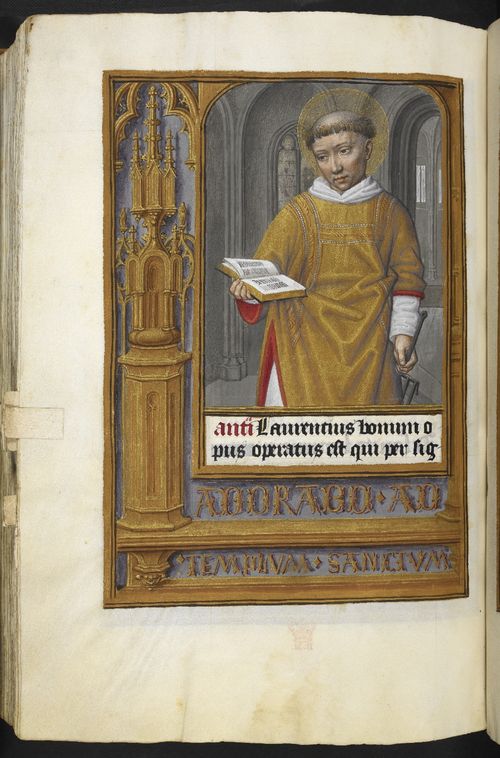 anti Laurentius bonum o
pus operatus est qui per sig
ADORABO · AD
· TEMPLVM · SANCTVM